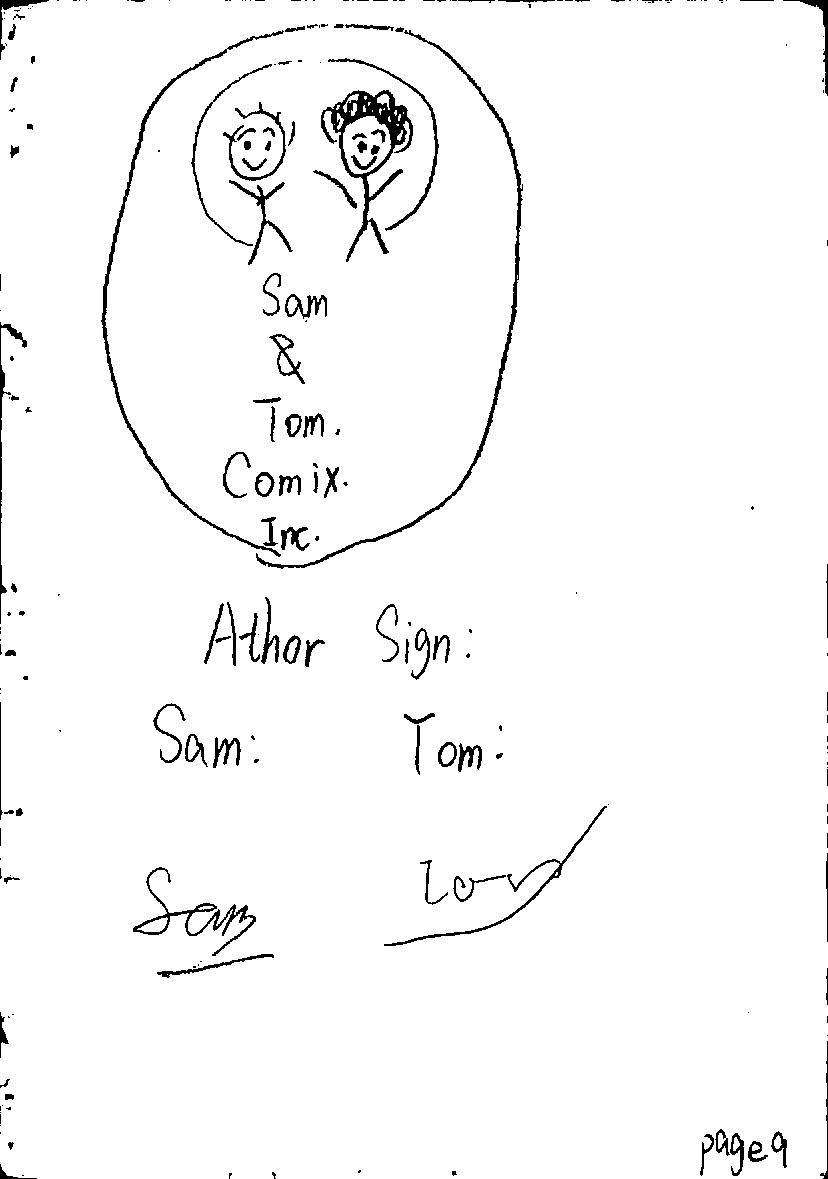 Sam
&
Tom.
Comix.
Inc.
Athor Sign:
Sam: Tom:
Sam Tom
page9